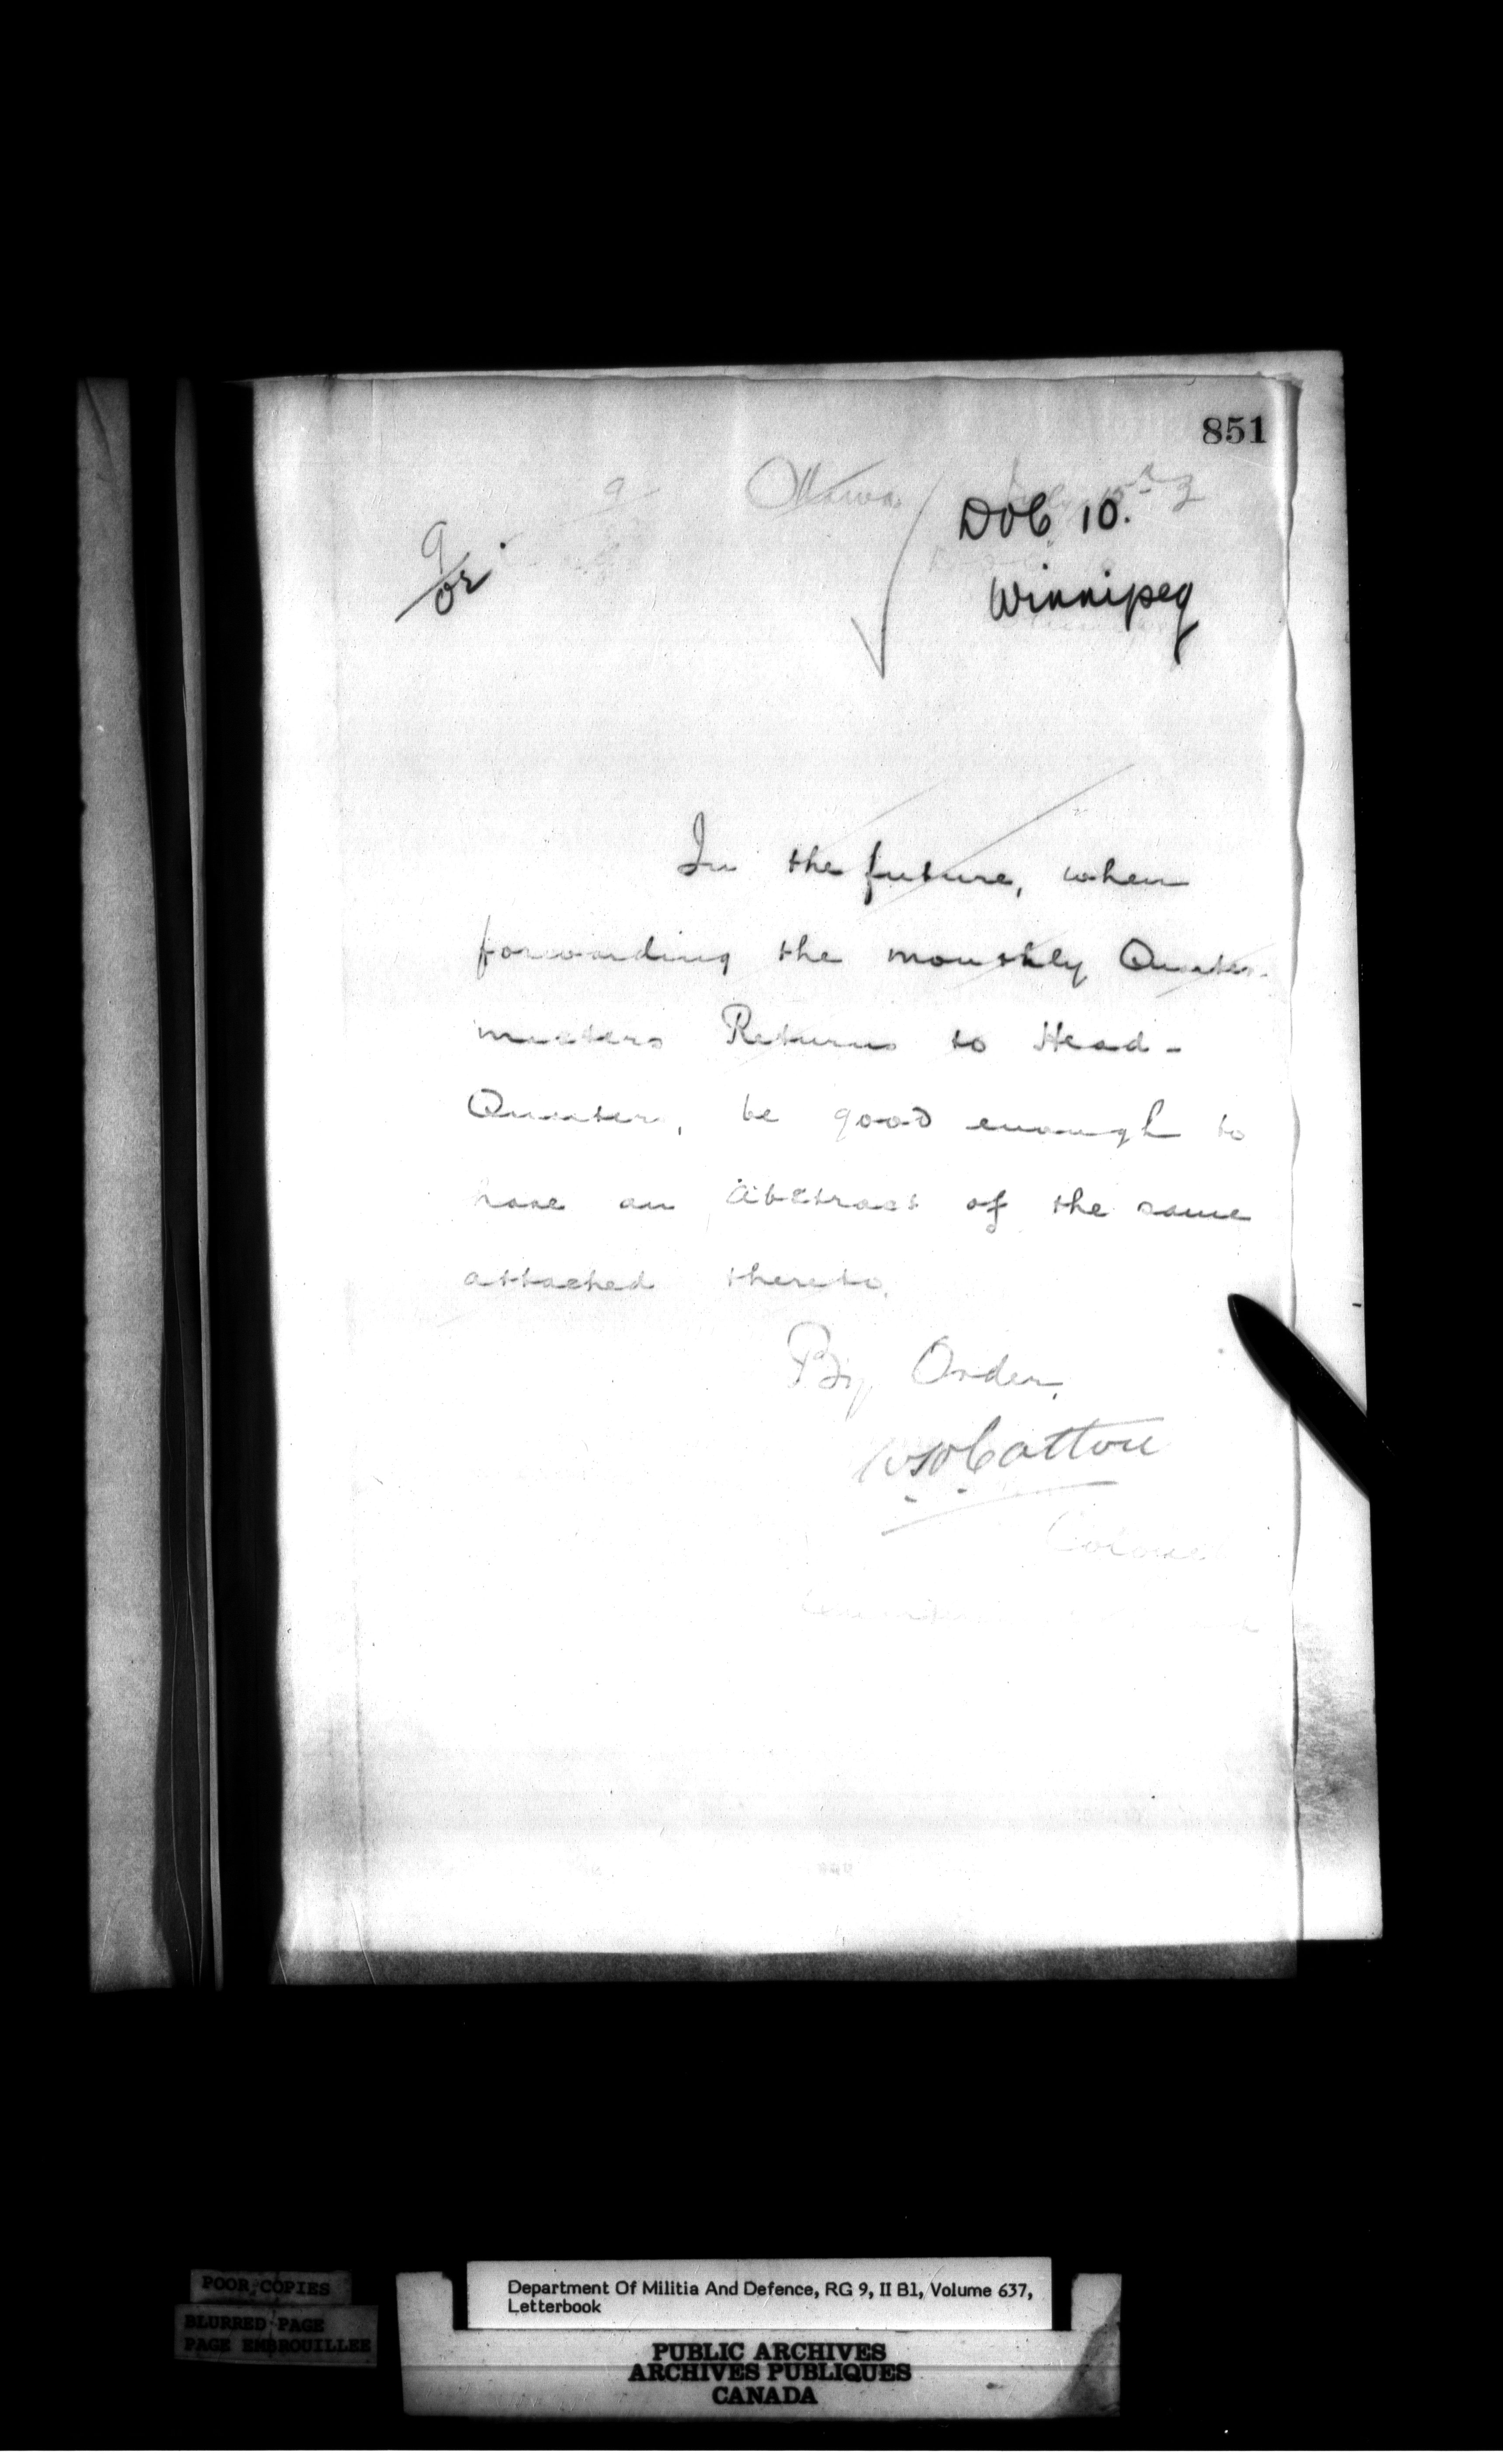 851
Ottawa
DOC 10.
9/02
Winnipeg
In the future, when
forwarding the monthly Quarter-
masters Returns to Head-
Quarters, be good enough to
have an Abstract of the same
attached thereto.
By Order,
Colonel
POOR COPIES
BLURRED PAGE
PAGE EMBROUILLEE
Department Of Militia And Defence, RG 9, II B1, Volume 637,
Letterbook
PUBLIC ARCHIVES
ARCHIVES PUBLIQUES
CANADA